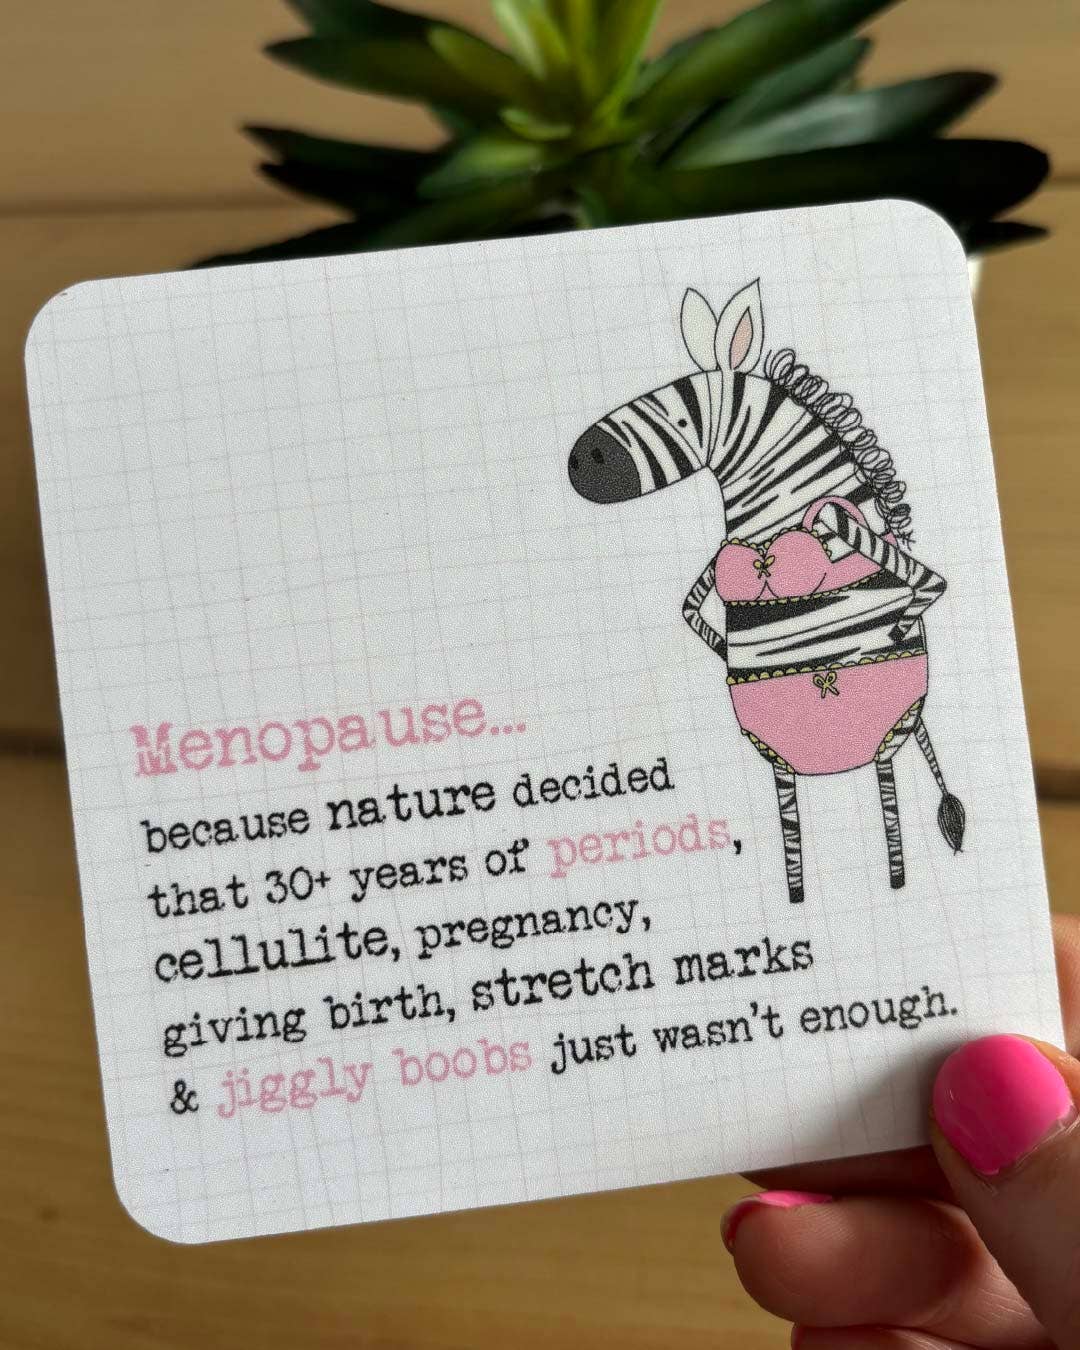 Menopause...
because nature decided
that 30+ years of periods,
cellulite, pregnancy,
giving birth, stretch marks
& jiggly boobs just wasn't enough.